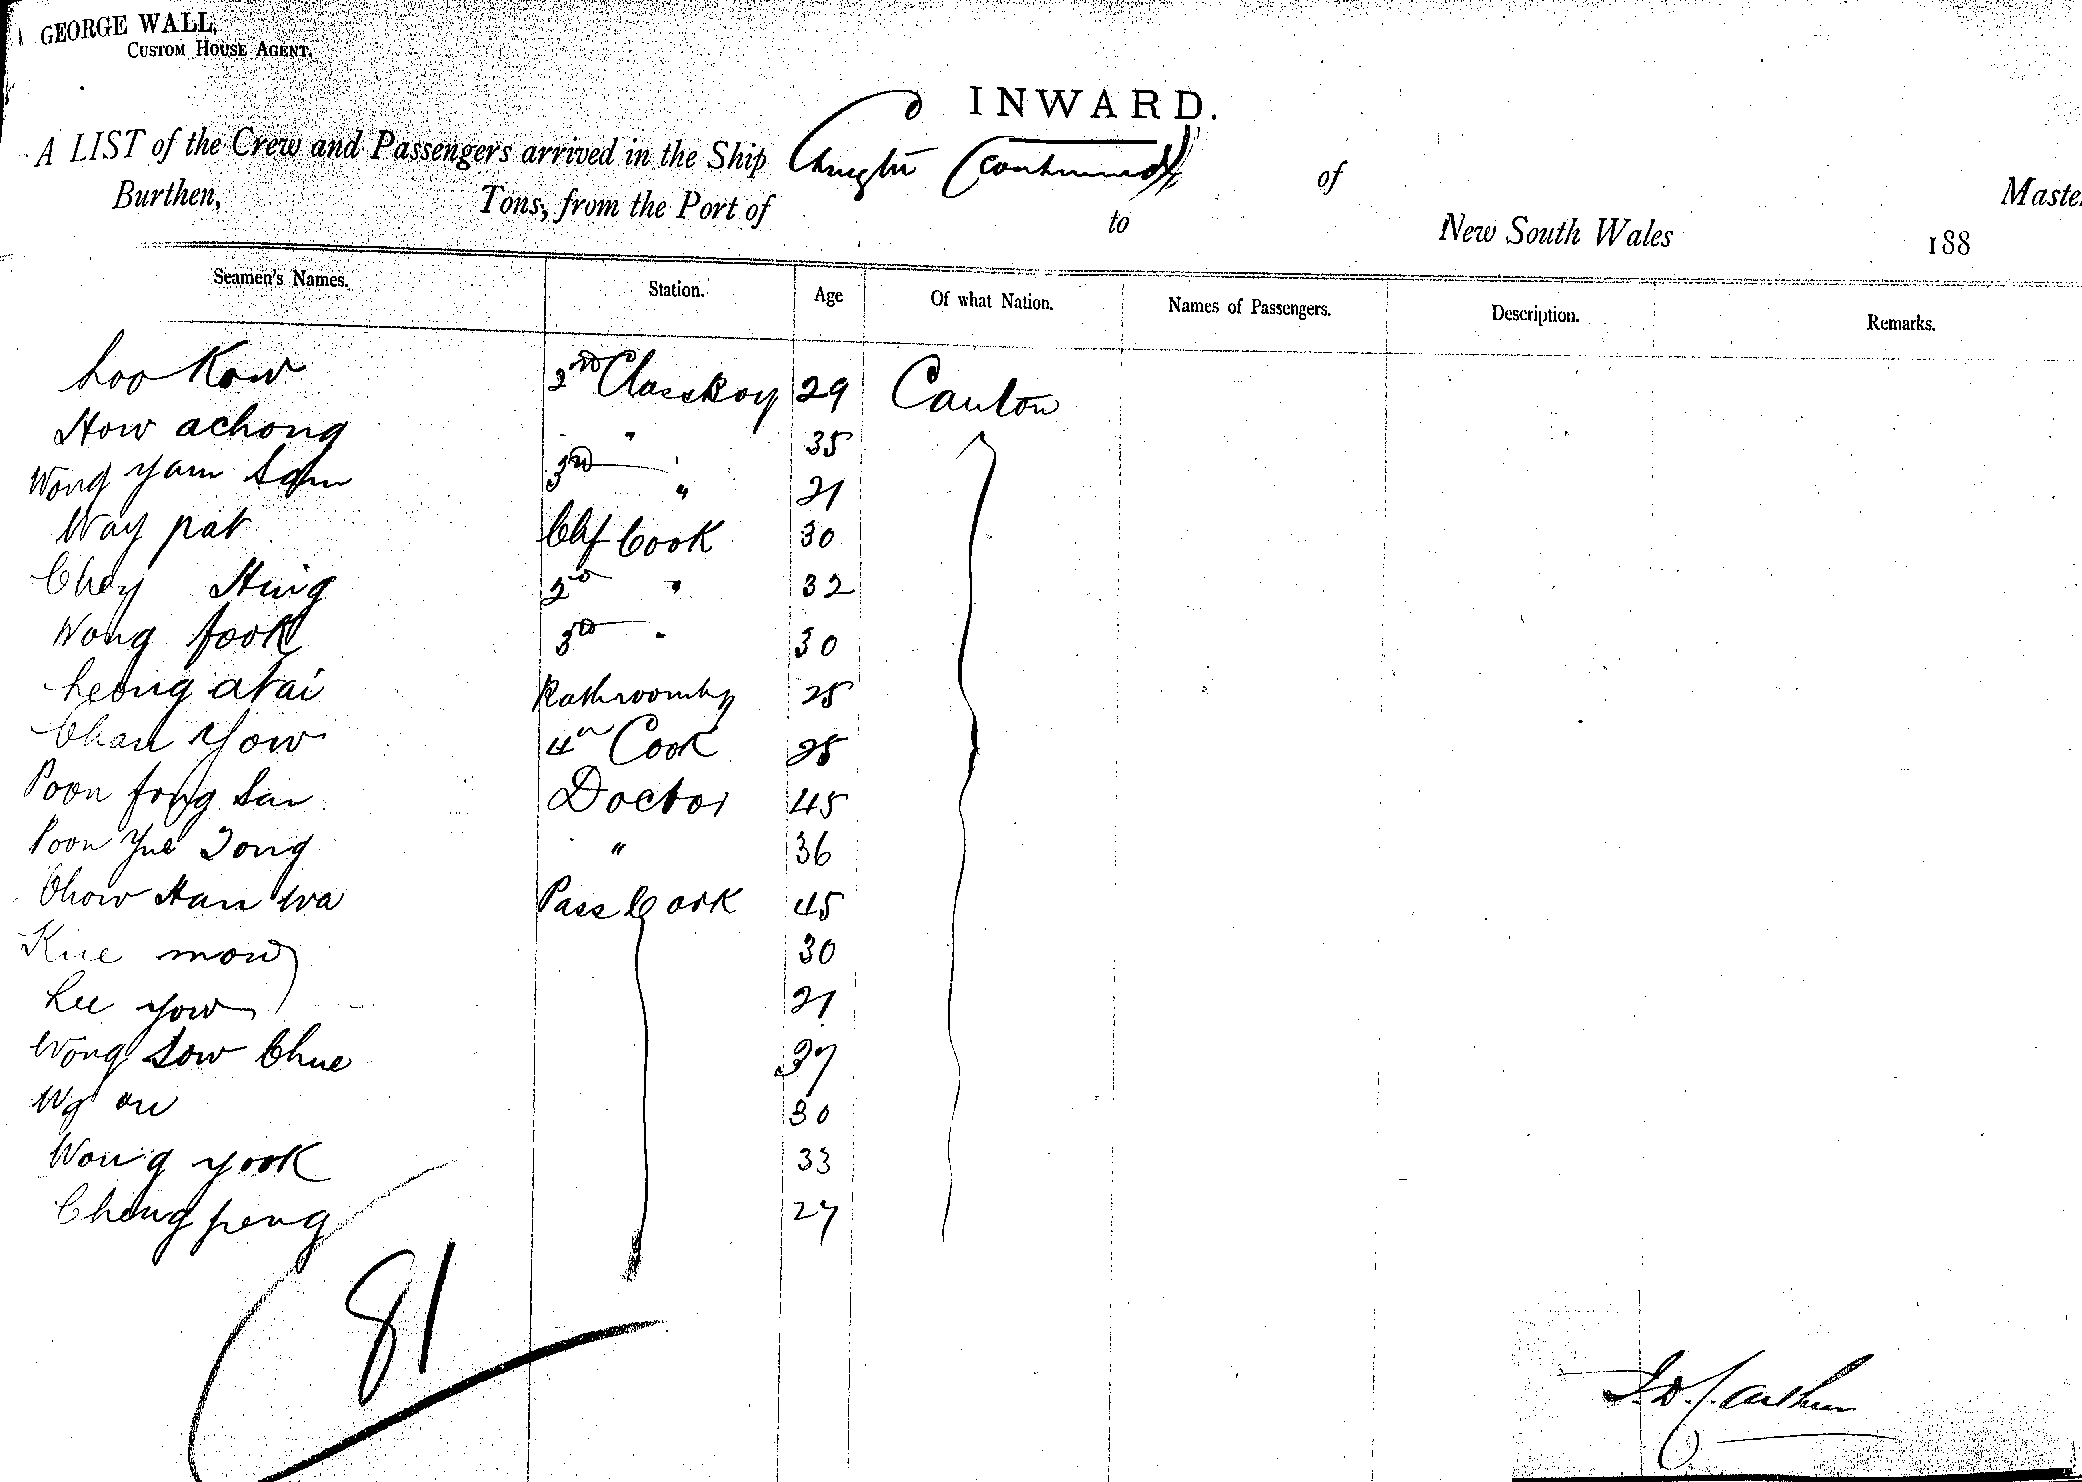 GEORGE WALL,
CUSTOM HOUSE AGENT.
INWARD.
A LIST of the Crew and Passengers arrived in the Ship Changsha (Continued) of Master
Burthen, Tons, from the Port of to New South Wales 188
Seamen's Names. Station. Age Of what Nation. Names of Passengers. Description. Remarks.
Loo Kow 2nd Class Boy 29 Canton
How achong " 35
Wong yam Sam 3rd " 21
Way pat Chf Cook 30
Chey Hing 2nd " 32
Wong fook 3rd " 30
Leong atai Bathroomboy 25
Chan Yow 4th Cook 25
Poon fong San Doctor 45
Poon Yue Tong " 36
Chow Han wa Pass Cook 45
Kue mow 30
Lee yow 21
Wong Sow Chue 37
Wg on 30
Wong yook 33
Cheng peng 27
81